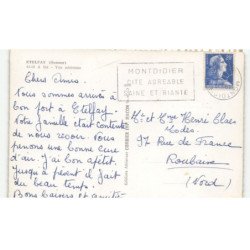 ETELFAY (Somme)
MONTDIDIER
CITE AGREABLE
SAINE ET RIANTE
Chers Amis.
Nous sommes arrivés à
bon port à Etelfay.
Notre famille était contente
de nous revoir. Nous
prenons une bonne cure
d'air. J'ai bon appétit.
jusqu'à présent il fait
du beau temps.
Bons baisers et amitiés
Mr et Cme Henri Claes
Modes.
97 Rue de France
Roubaix
(Nord)